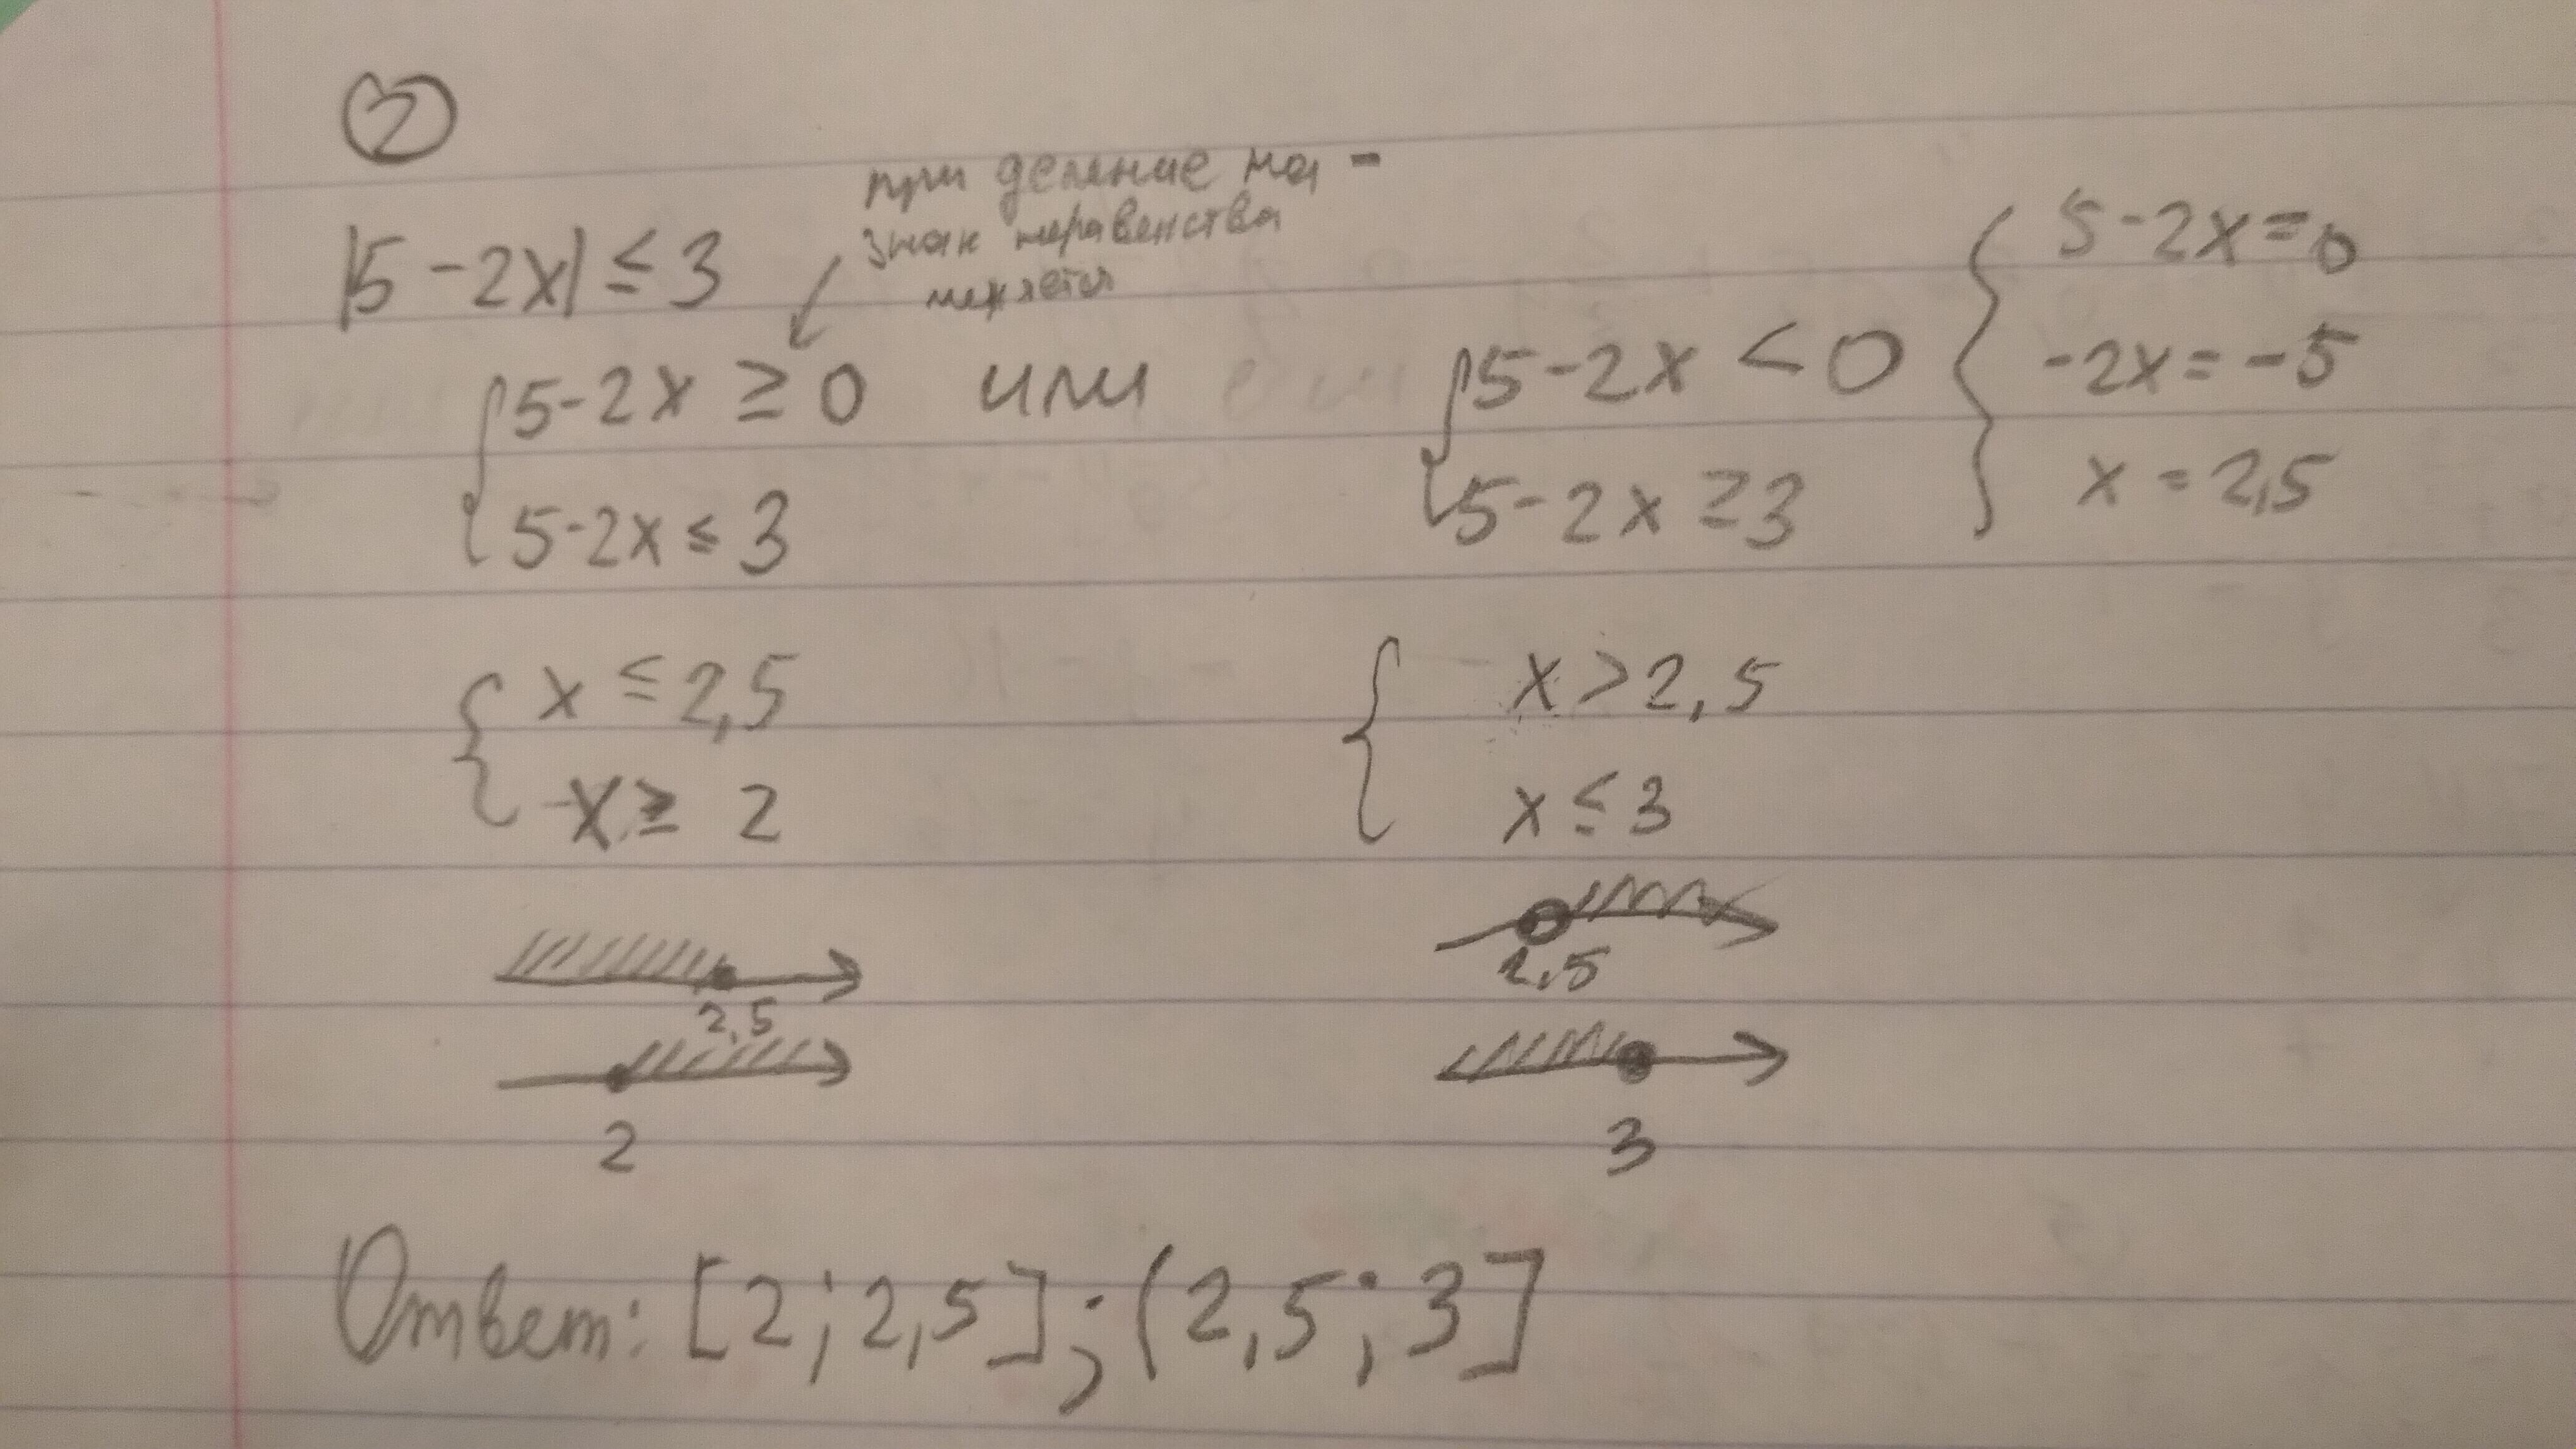 2
при деление на -
знак неравенства
меняется
|5 - 2x| ≤ 3
5 - 2x ≥ 0 или 5 - 2x < 0
5 - 2x ≤ 3 5 - 2x ≥ 3
5 - 2x = 0
-2x = -5
x = 2,5
x ≤ 2,5 x > 2,5
x ≥ 2 x ≤ 3
2,5 2,5
2 3
Ответ: [2; 2,5]; (2,5; 3]